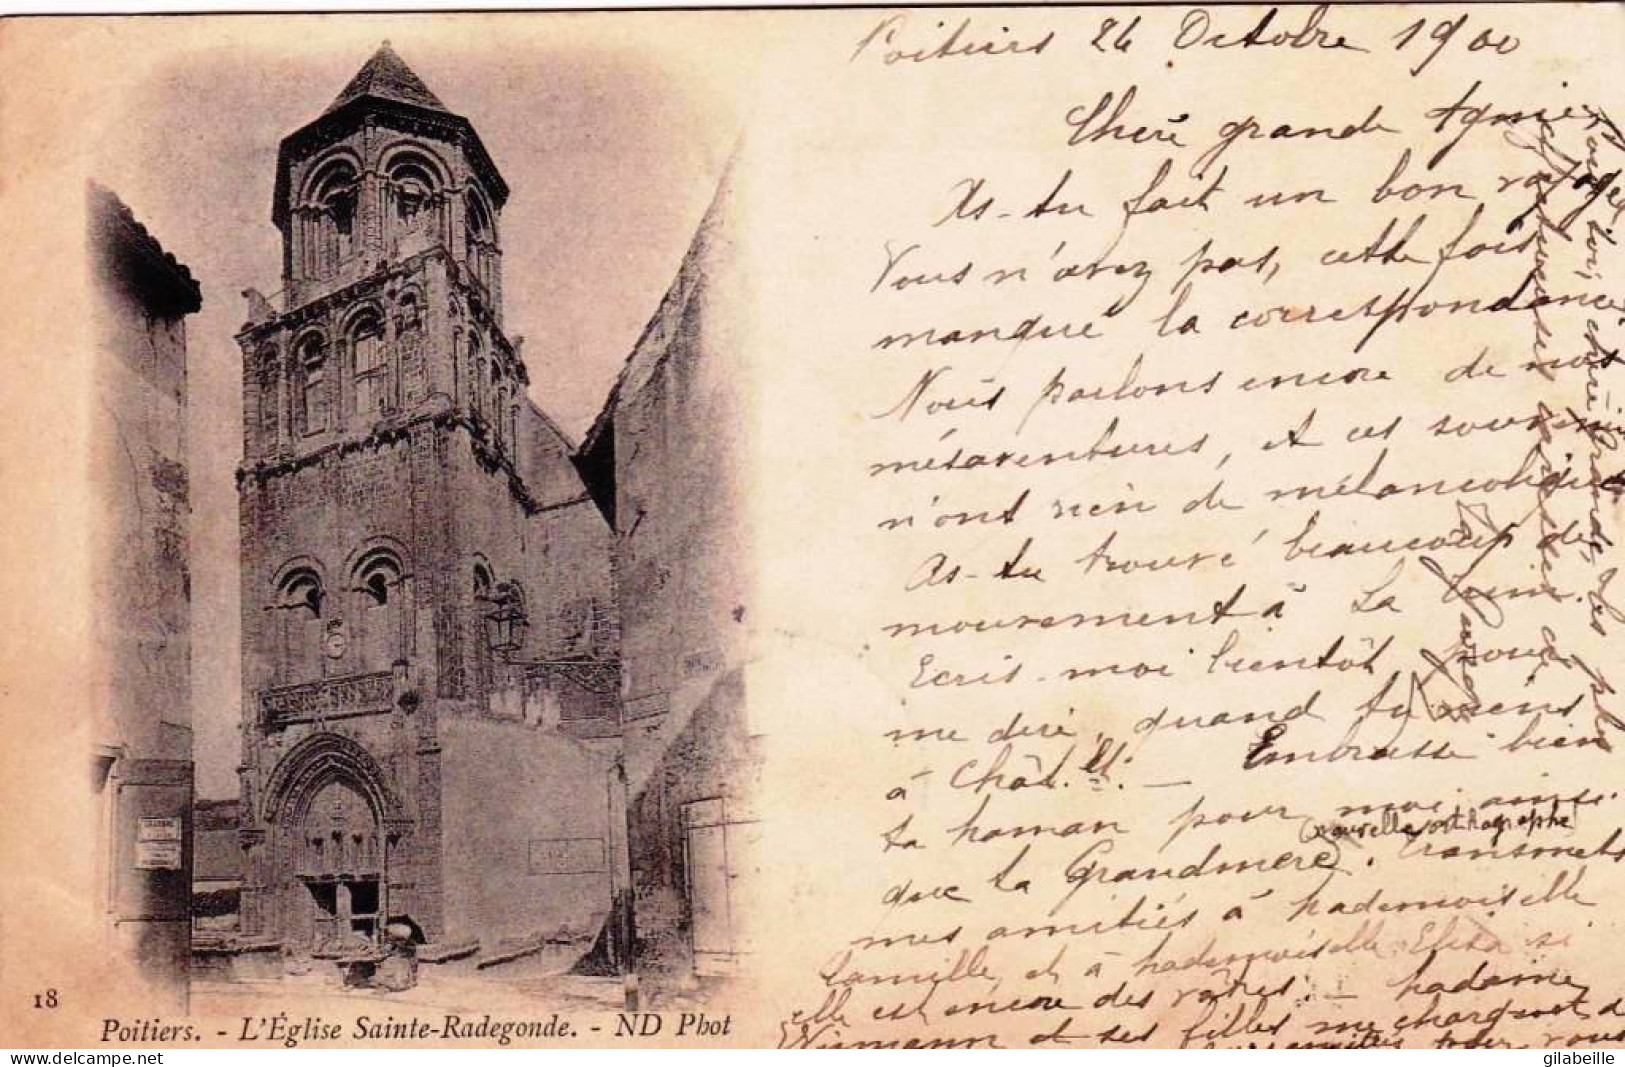 Poitiers 26 Octobre 1900
Chère grande Agnie
As-tu fait un bon voyage
Vous n'avez pas, cette fois
manqué la correspondance
Nous parlons encore de nos
mésaventures, et ces souvenirs
n'ont rien de mélancolique
As-tu trouvé beaucoup de
mouvement à La
Ecris-moi bientôt, pour
me dire, quand tu viens
à Chât.lt. — Embrasse bien
ta maman pour moi, ainsi
(nouvelle orthographe)
que ta Grandmère. Transmets
mes amitiés à Mademoiselle
Camille, et à Mademoiselle Elisa si
elle est encore des vôtres. — Madame
et ses filles me chargent de
toi, chère grande, les plus
18
Poitiers. - L'Église Sainte-Radegonde. - ND Phot
gilabeille